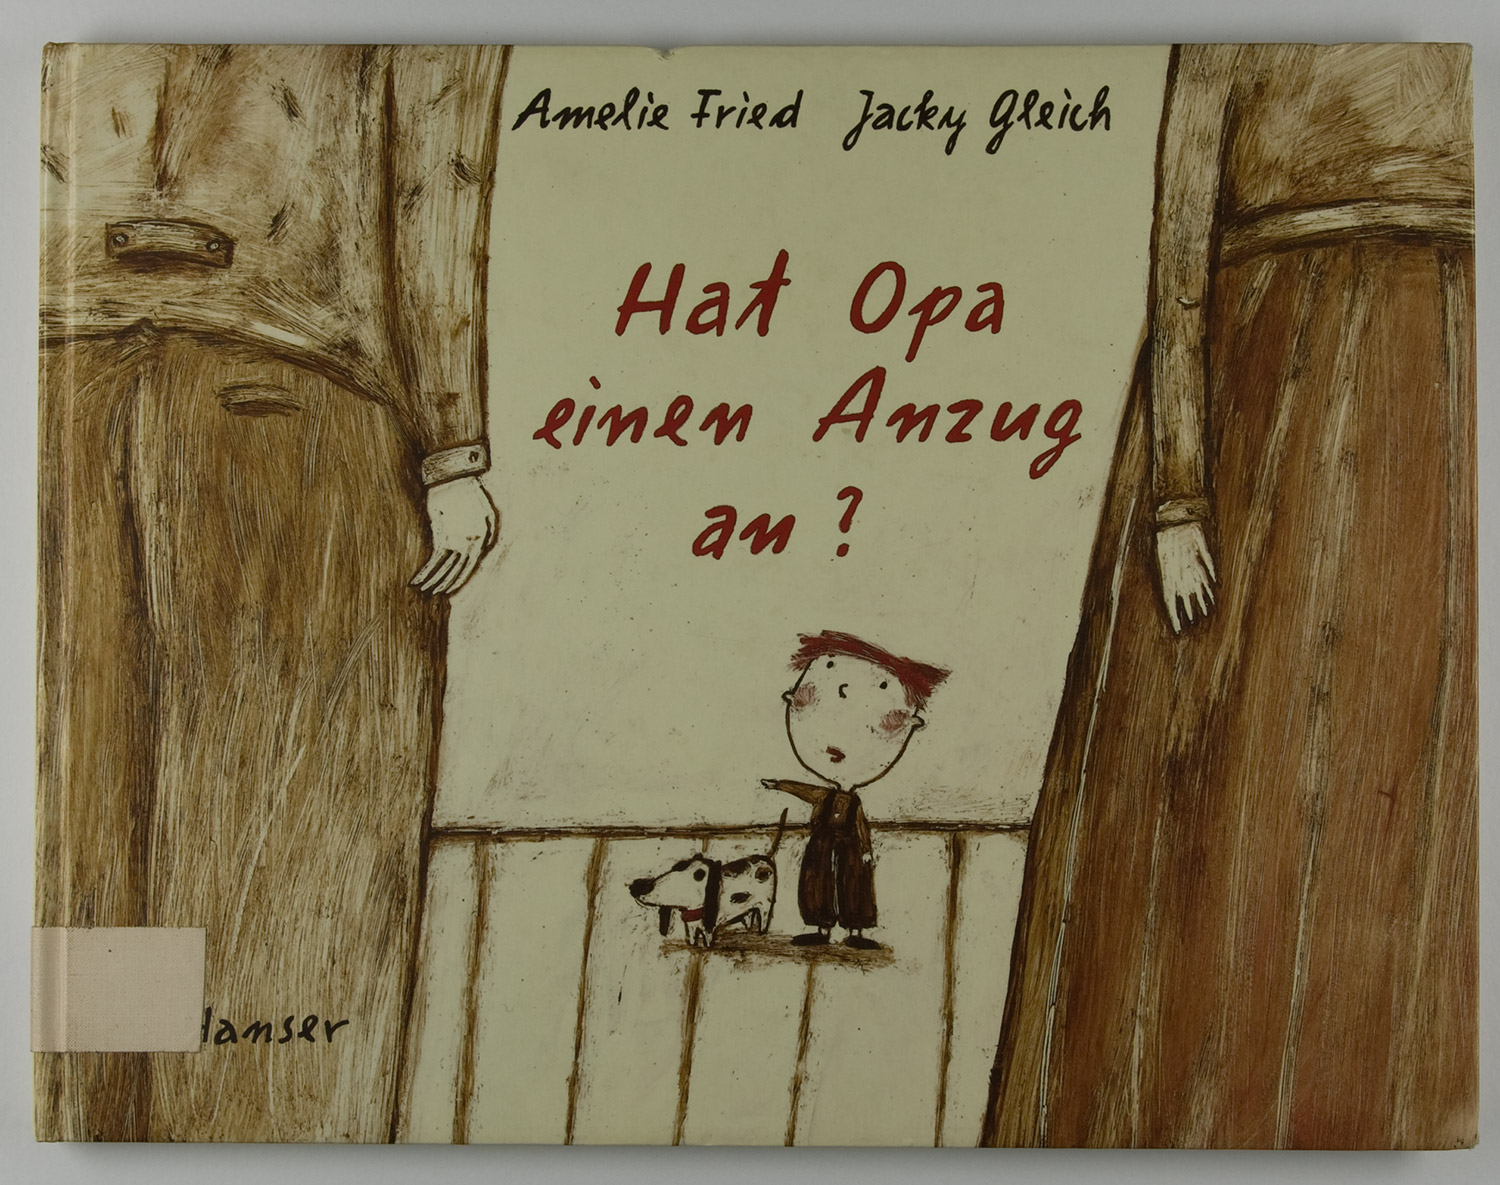 Amelie Fried Jacky Gleich
Hat Opa
einen Anzug
an?
Hanser